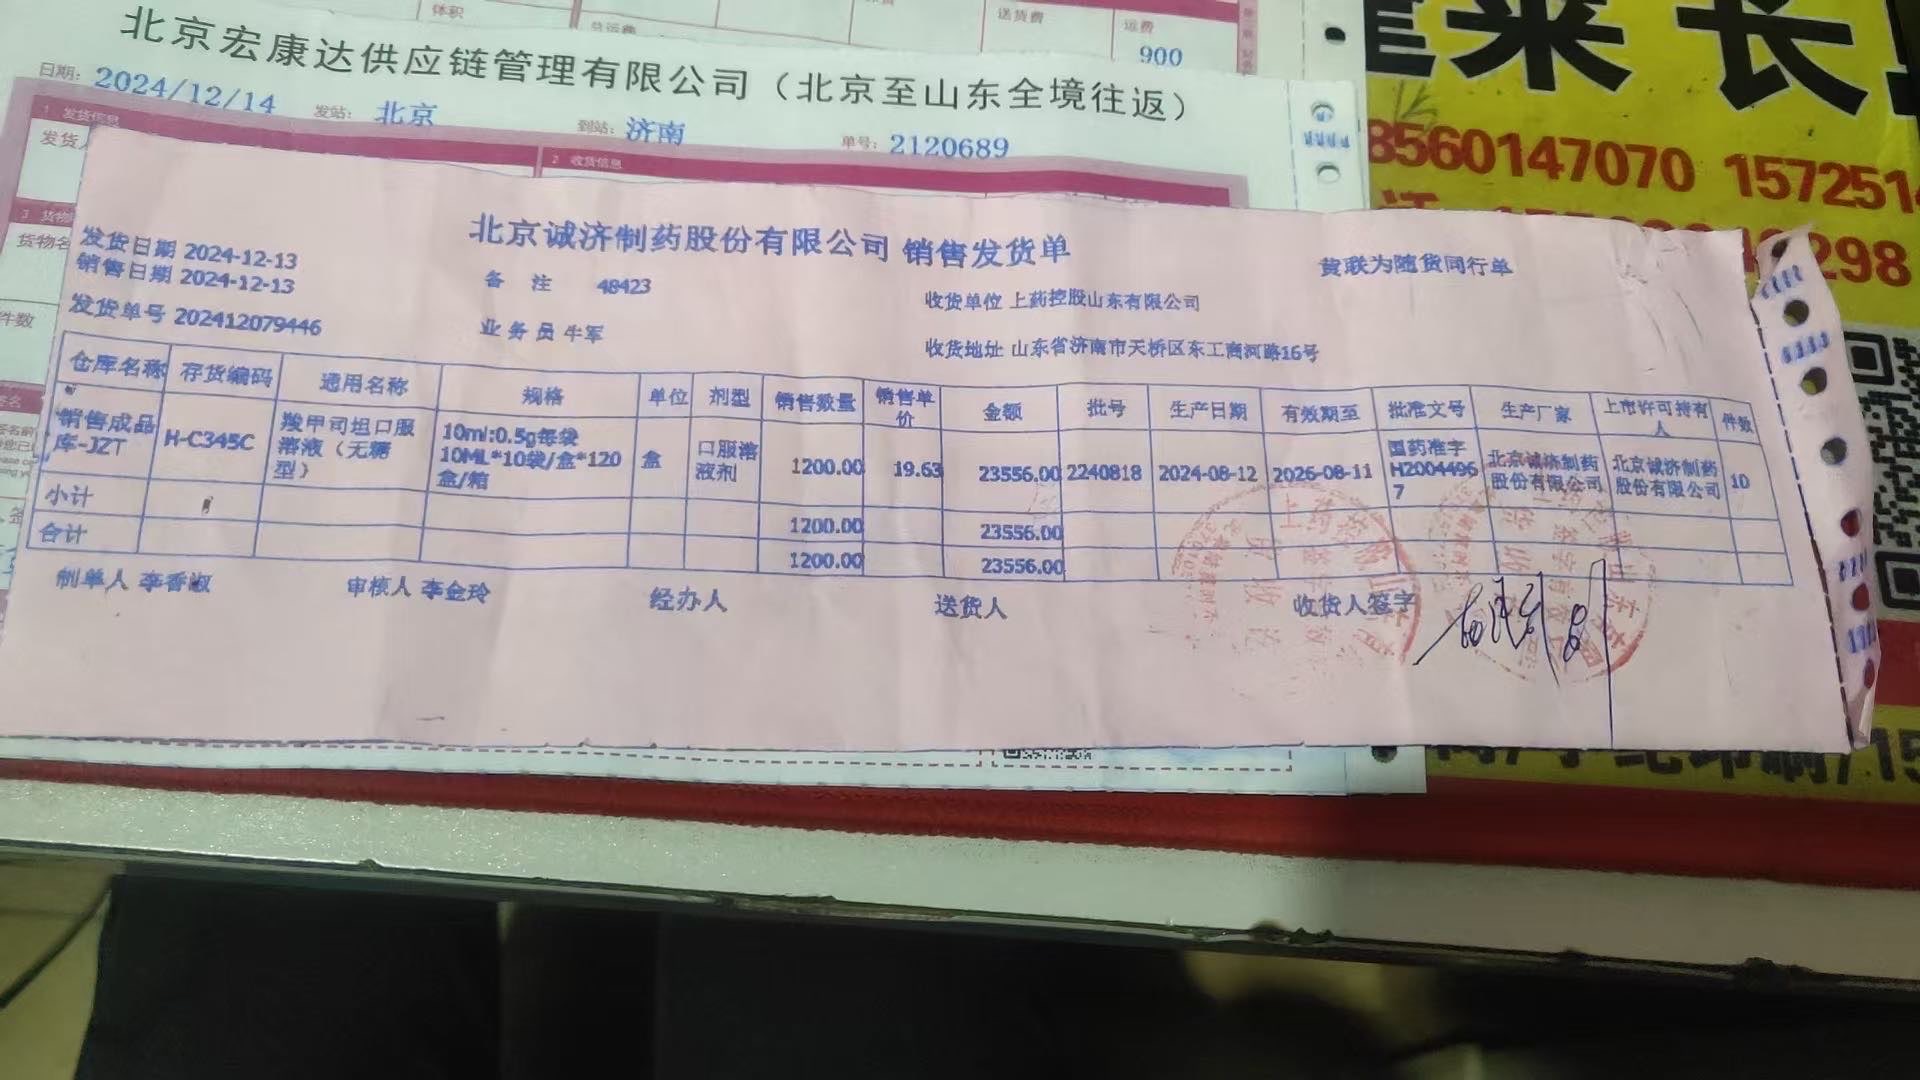 体积
总运费
送货费
运费
900
北京宏康达供应链管理有限公司（北京至山东全境往返）
日期: 2024/12/14
发站: 北京
到站: 济南
单号: 2120689
1 发货信息
2 收货信息
发货人
3 货物
货物名
件数
蓬莱 长
8560147070 157251
298
北京诚济制药股份有限公司 销售发货单
黄联为随货同行单
发货日期 2024-12-13
销售日期 2024-12-13
发货单号 202412079446
备 注 48423
业务员 牛军
收货单位 上药控股山东有限公司
收货地址 山东省济南市天桥区东工商河路16号
仓库名称 存货编码 通用名称 规格 单位 剂型 销售数量 销售单价 金额 批号 生产日期 有效期至 批准文号 生产厂家 上市许可持有人 件数
销售成品库-JZT H-C345C 羧甲司坦口服溶液（无糖型） 10ml:0.5g每袋 10ML*10袋/盒*120盒/箱 盒 口服溶液剂 1200.00 19.63 23556.00 2240818 2024-08-12 2026-08-11 国药准字H20044967 北京诚济制药股份有限公司 北京诚济制药股份有限公司 10
小计 1200.00 23556.00
合计 1200.00 23556.00
制单人 李香淑
审核人 李金玲
经办人
送货人
收货人签字